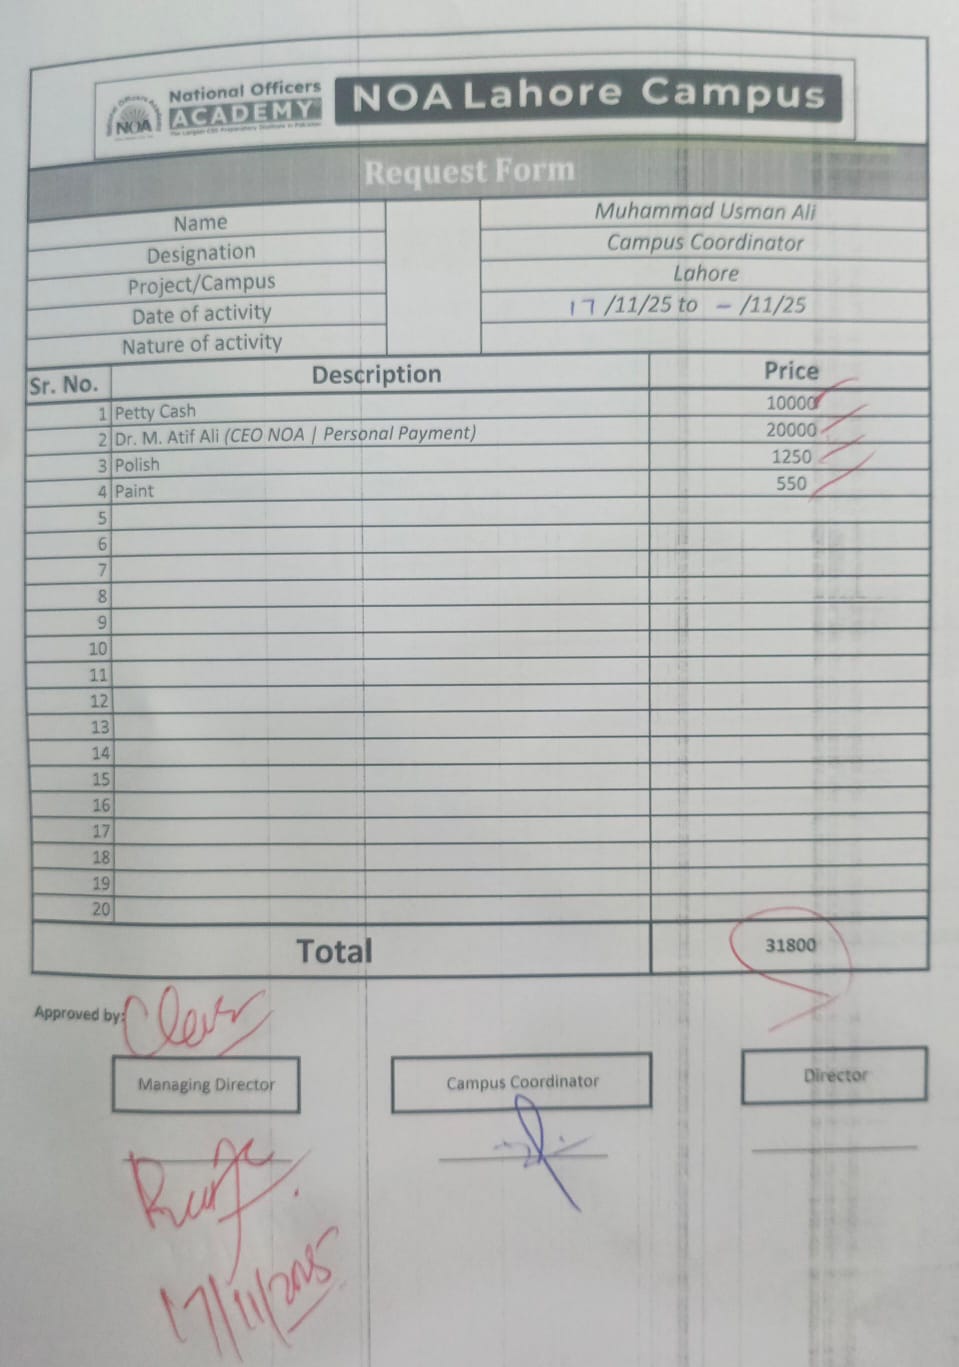 National Officers
ACADEMY
The Largest CSS Preparatory Institute in Pakistan
National Officers Academy
NOA
NOA Lahore Campus
Request Form
Name Muhammad Usman Ali
Designation Campus Coordinator
Project/Campus Lahore
Date of activity 17 /11/25 to - /11/25
Nature of activity
Sr. No. Description Price
1 Petty Cash 10000
2 Dr. M. Atif Ali (CEO NOA | Personal Payment) 20000
3 Polish 1250
4 Paint 550
5
6
7
8
9
10
11
12
13
14
15
16
17
18
19
20
Total 31800
Approved by:
Managing Director Campus Coordinator Director
17/11/2025